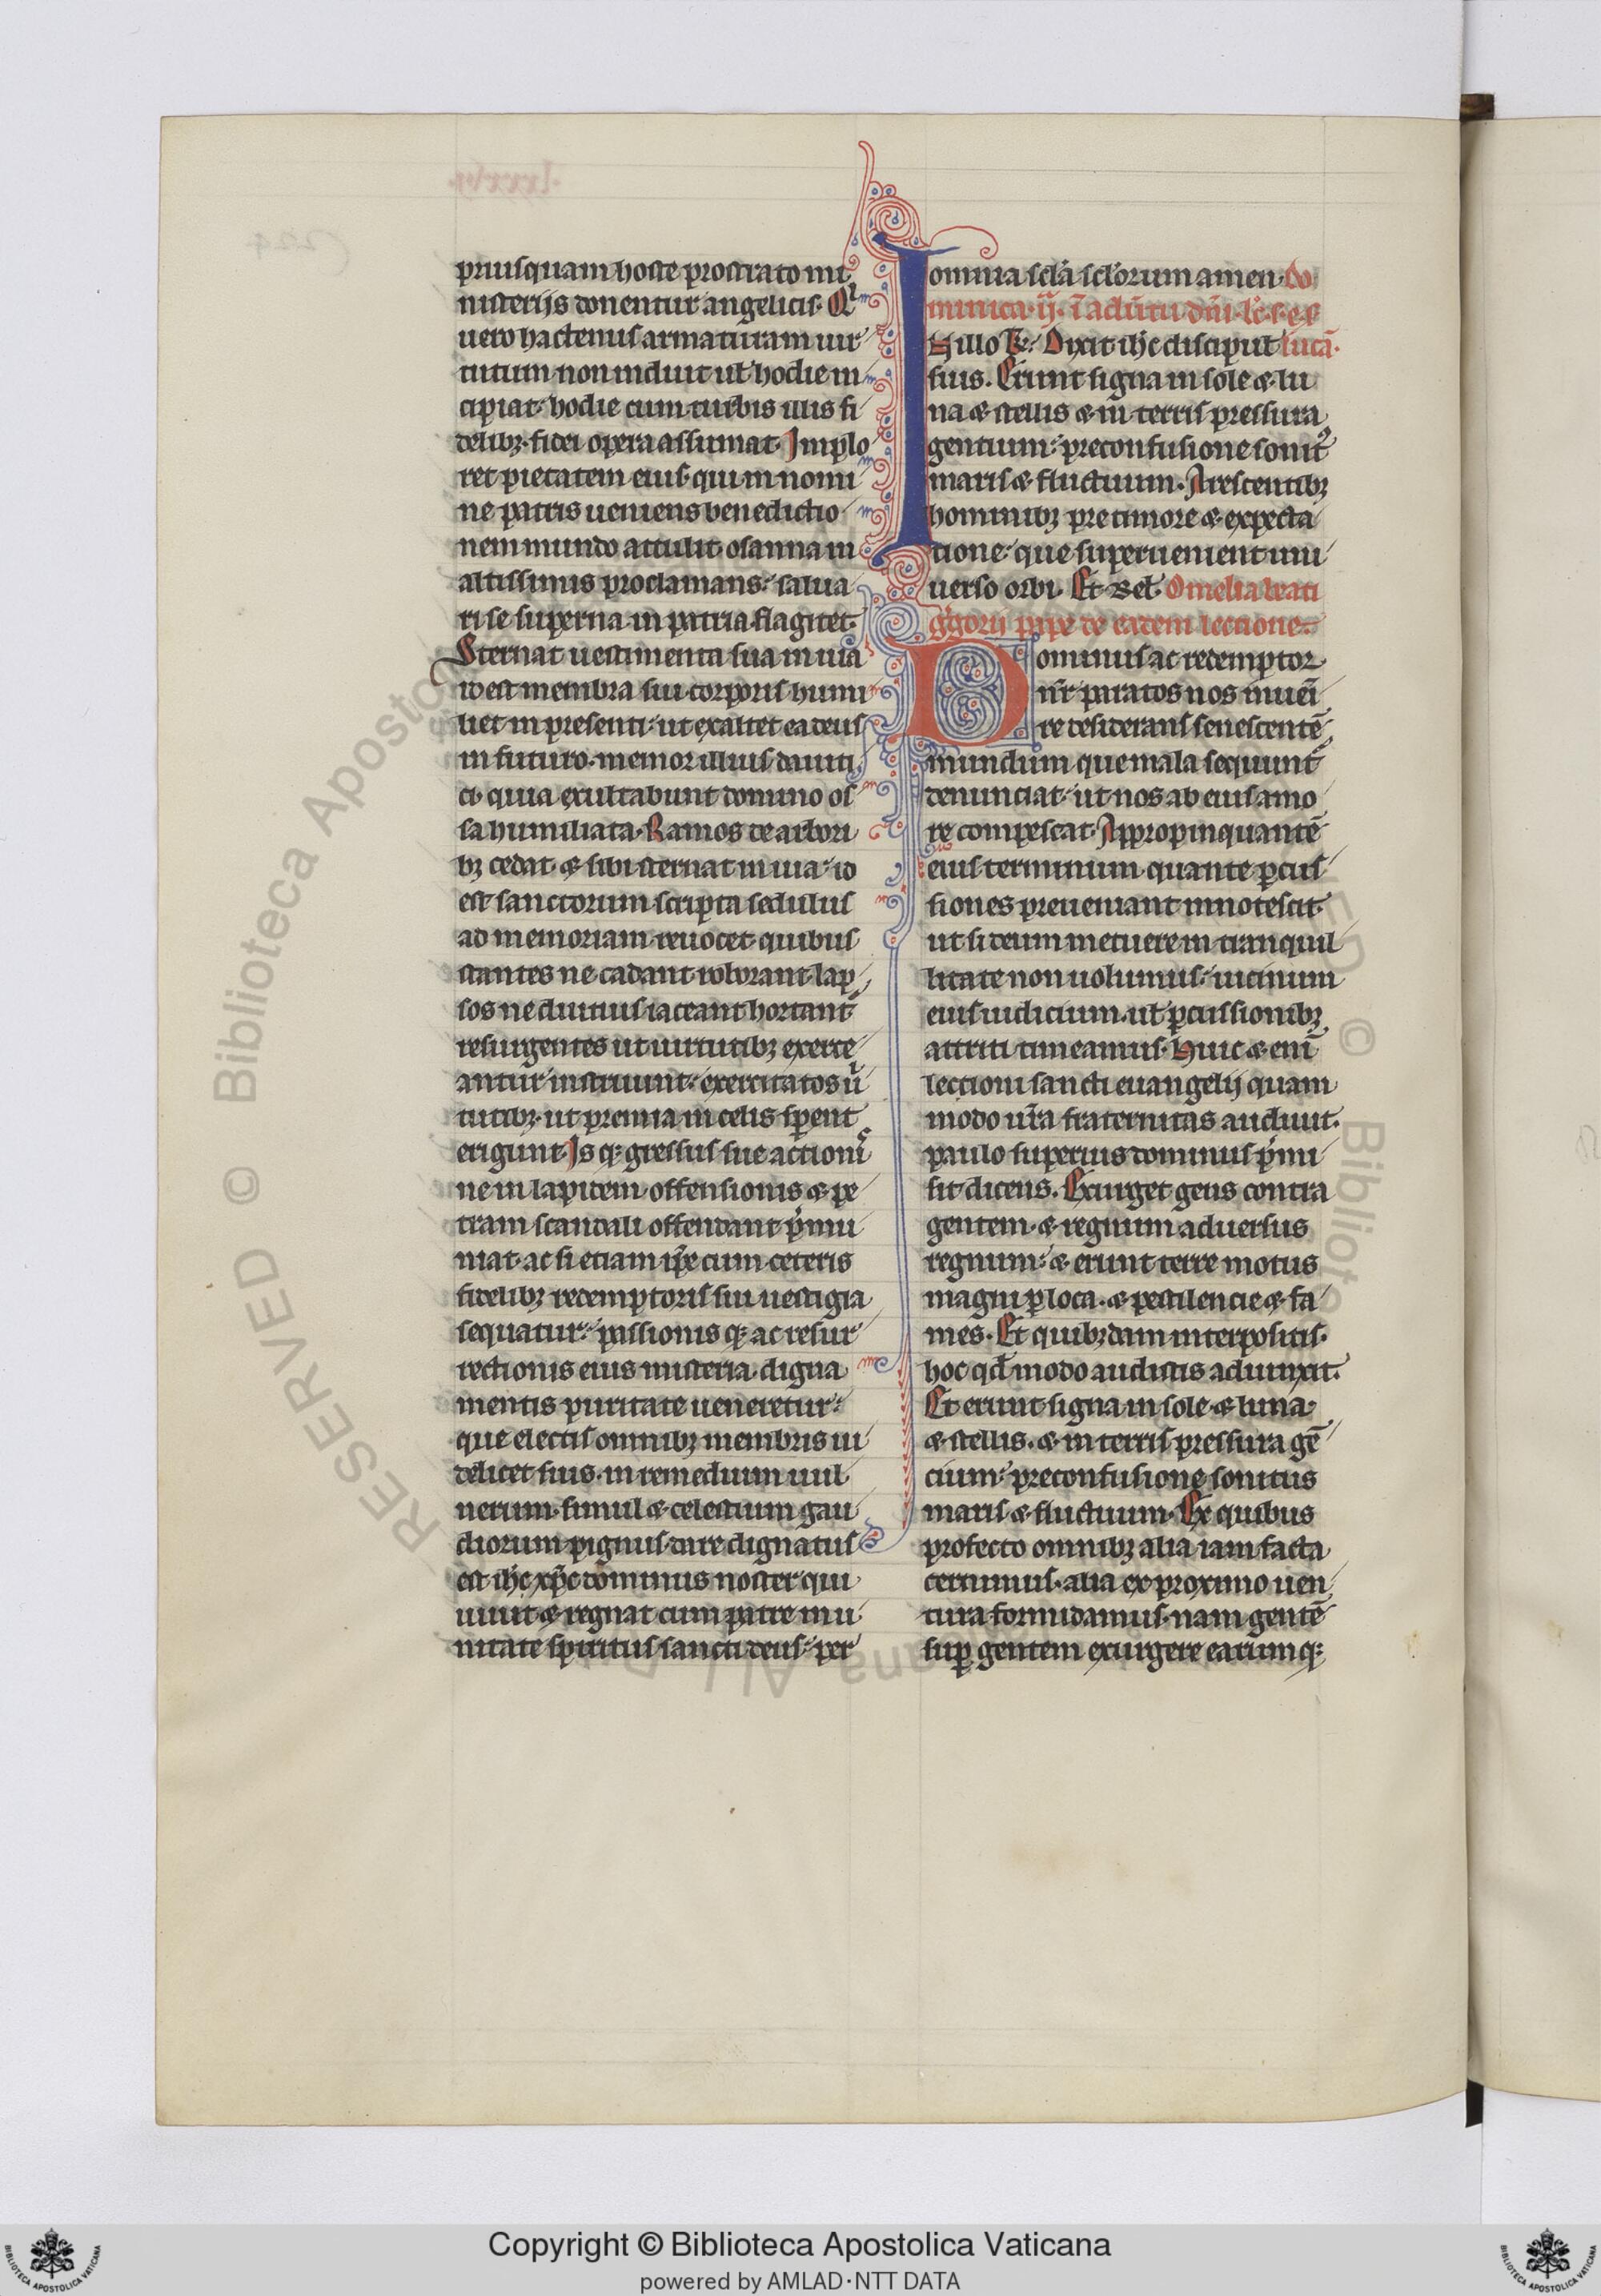 priusquam hoste prostrato mi
nisterijs donentur angelicis. Qͥ
uero hactenus armaturam uir
tutum non induit ul' hodie in
cipiat. hodie cum turbis illis fi
delibꝫ. fidei opera assumat. Implo
ret pietatem eius. qui in nomi
ne patris ueniens benedictio
nem mundo attulit. osanna in
altissimis proclamans. salua
ri se superna in patria flagitet.
Sternat uestimenta sua in uia
id est membra sui corporis humi
liet in presenti. ut exaltet ea deus
in futuro. memor illius dauiti
ci. quia exultabunt domino os
sa humiliata. Ramos de arbori
bꝫ cedat. & sibi sternat in uia. id
est sanctorum scripta sedulus
ad memoriam reuocet quibus
stantes ne cadant roborant. lap
sos ne diutius iaceant hortant᷑
resurgentes ut uirtutibꝫ exerce
antur instruunt. exercitatos uͥ
tutibꝫ. ut premia in celis sperent
erigunt. Is qꝫ gressus sue actionis
ne in lapidem offensionis & pe
tram scandali offendant pͥmu
niat. ac si etiam ip̄e cum ceteris
fidelibꝫ redemptoris sui uestigia
sequatur. passionis qꝫ ac resur
rectionis eius misteria. digna
mentis puritate ueneretur.
que electis omnibꝫ membris ui
delicet suis. in remedium uul
nerum. simul & celestium gau
diorum pignus. dare dignatus
est ih̄c xp̄c dominus noster qui
uiuit & regnat cum patre in u
nitate spiritus sancti deus. per
omnia scl̄a scl̄orum amen. do
minica. ij. ī aduētu dn̄i. lc̄. s. e. s.
In illo t̄. Dixit ih̄c discipul' lucā.
suis. Erunt signa in sole & lu
na & stellis & in terris pressura
gentium. pre confusione sonitꝰ
maris & fluctuum. Arescentibꝫ
hominibꝫ pre timore & expecta
tione. que superuenient uni
uerso orbi. Et rel'. Omelia beati
gͥgorij pape de eadem lectione.
Dominus ac redemptor
nr̄ paratos nos inueī
re desiderans senescentē
mundum que mala sequunt᷑
denunciat. ut nos ab eius amo
re compescat. Appropinquantē
eius terminum quante ꝑcus
siones preueniant innotescit.
ut si deum metuere in tranquil
litate non uolumus. uicinum
eius iudicium. ul' ꝑcussionibꝫ
attriti timeamus. Huic & enī
lectioni sancti euangelij quam
modo ur̄a fraternitas audiuit.
paulo superius dominus pͥmi
sit dicens. Exurget gens contra
gentem. & regnum aduersus
regnum. & erunt terre motus
magni ꝑ loca. & pestilencie & fa
mes. Et quibꝫdam interpositis.
hoc qd̄ modo audistis adiunxit.
Et erunt signa in sole & luna
& stellis. & in terris pressura gē
cium. pre confusione sonitus
maris & fluctuum. Ex quibus
profecto omnibꝫ alia iam facta
cernimus. alia ex proximo uen
tura formidamus. nam gentē
suꝑ gentem exurgere earum qꝫ
RESERVED © Biblioteca Apostolica
© Bibliote
Copyright © Biblioteca Apostolica Vaticana
powered by AMLAD·NTT DATA
BIBLIOTECA APOSTOLICA VATICANA
BIBLIOTECA APOSTOLICA VATICANA